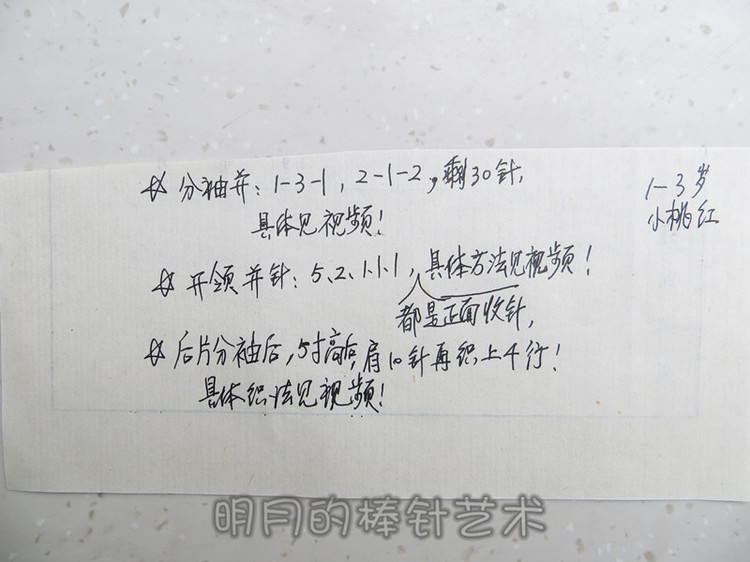 ☆ 分袖并：1-3-1，2-1-2，剩30针，
具体见视频！
1-3岁
小桃红
☆ 开领并针：5、2、1、1、1，具体方法见视频！
都是正面收针，
☆ 后片分袖后，5寸高后，肩10针再织上4行！
具体织法见视频！
明月的棒针艺术